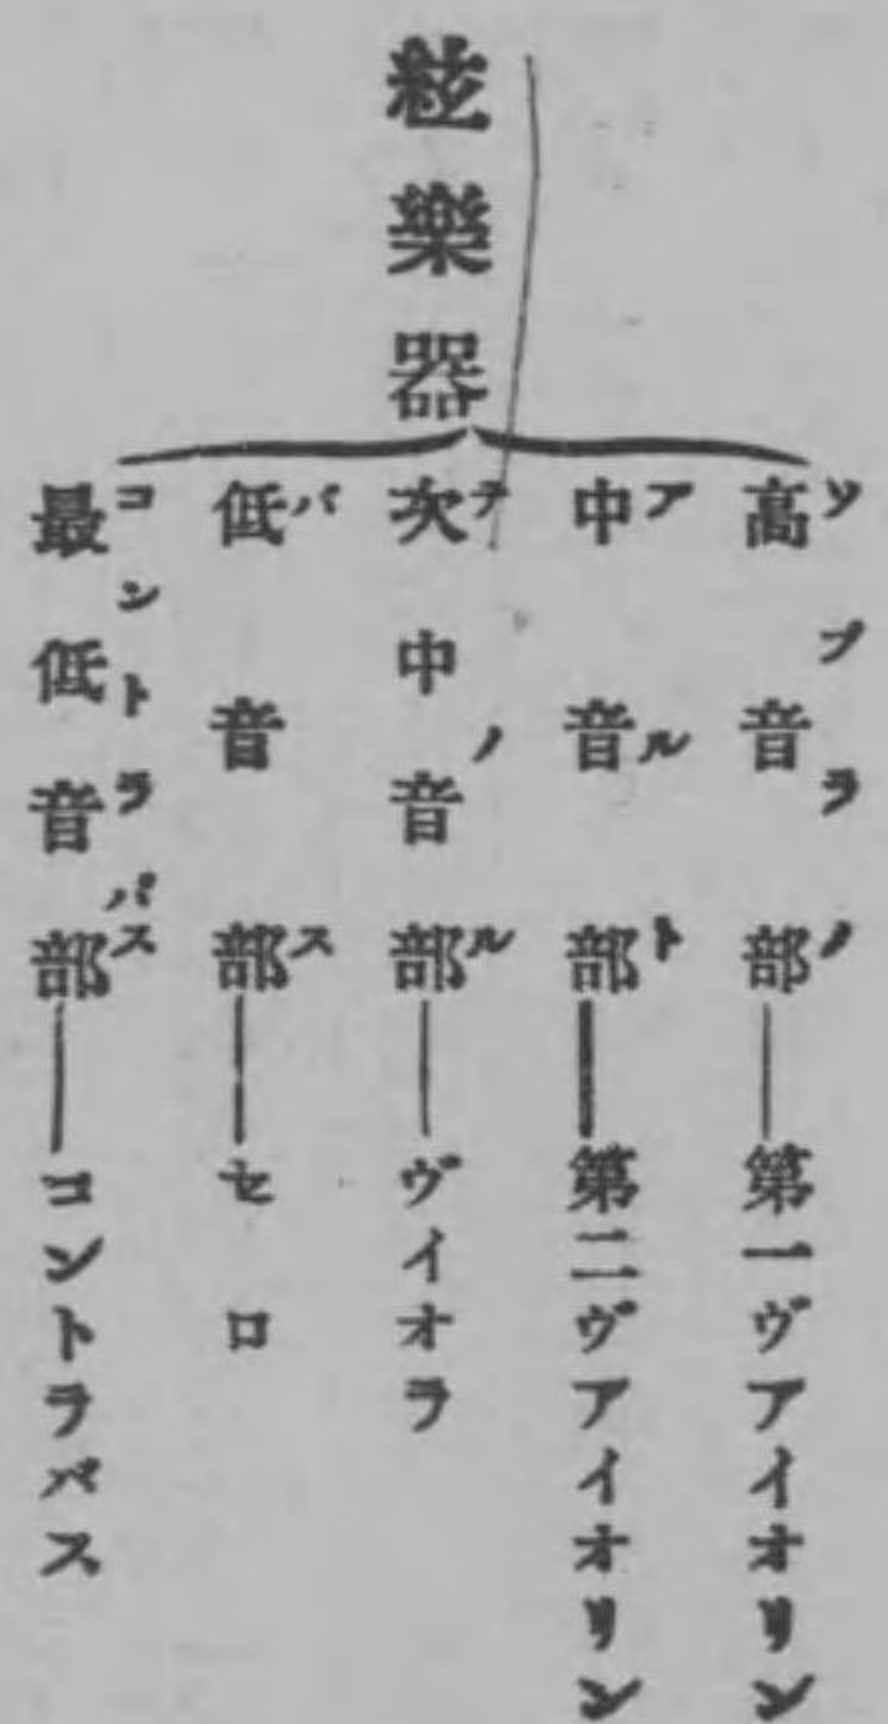 絃樂器
高音部ソプラノ
第一ヴアイオリン
中音部アルト
第二ヴアイオリン
次中音部テノル
ヴイオラ
低音部バス
セロ
最低音部コントラバス
コントラバス